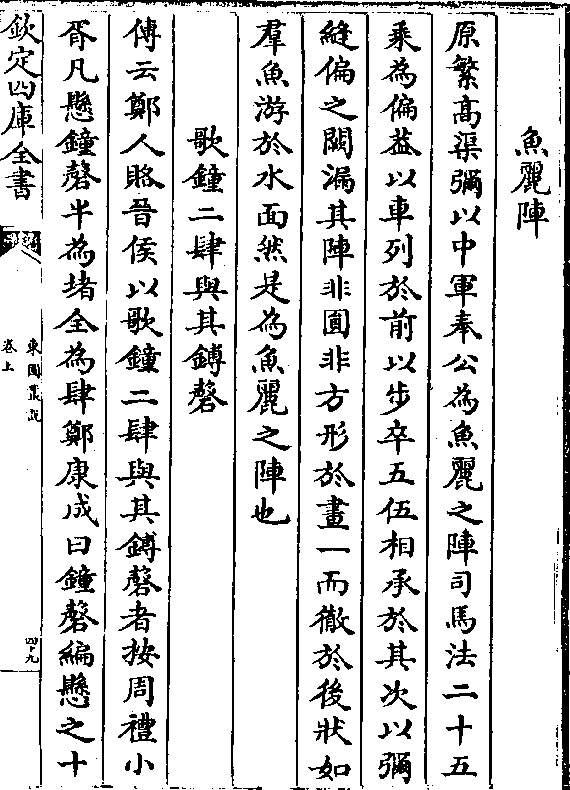 魚麗陣
原繁高渠彌以中軍奉公為魚麗之陣司馬法二十五
乘為偏葢以車列於前以步卒五伍相承於其次以彌
縫偏之闕漏其陣非圓非方形於畫一而徹於後狀如
羣魚游於水面然是為魚麗之陣也
歌鐘二肆與其鎛磬
傳云鄭人賂晉侯以歌鐘二肆與其鎛磬者按周禮小
胥凡懸鐘磬半為堵全為肆鄭康成曰鐘磬編懸之十
欽定四庫全書
東園叢説
卷上
四十九